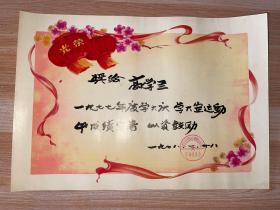 光荣
奖给 高学兰
一九七七年度学大庆 学大寨运动
中成绩显著 以资鼓励
一九七八.